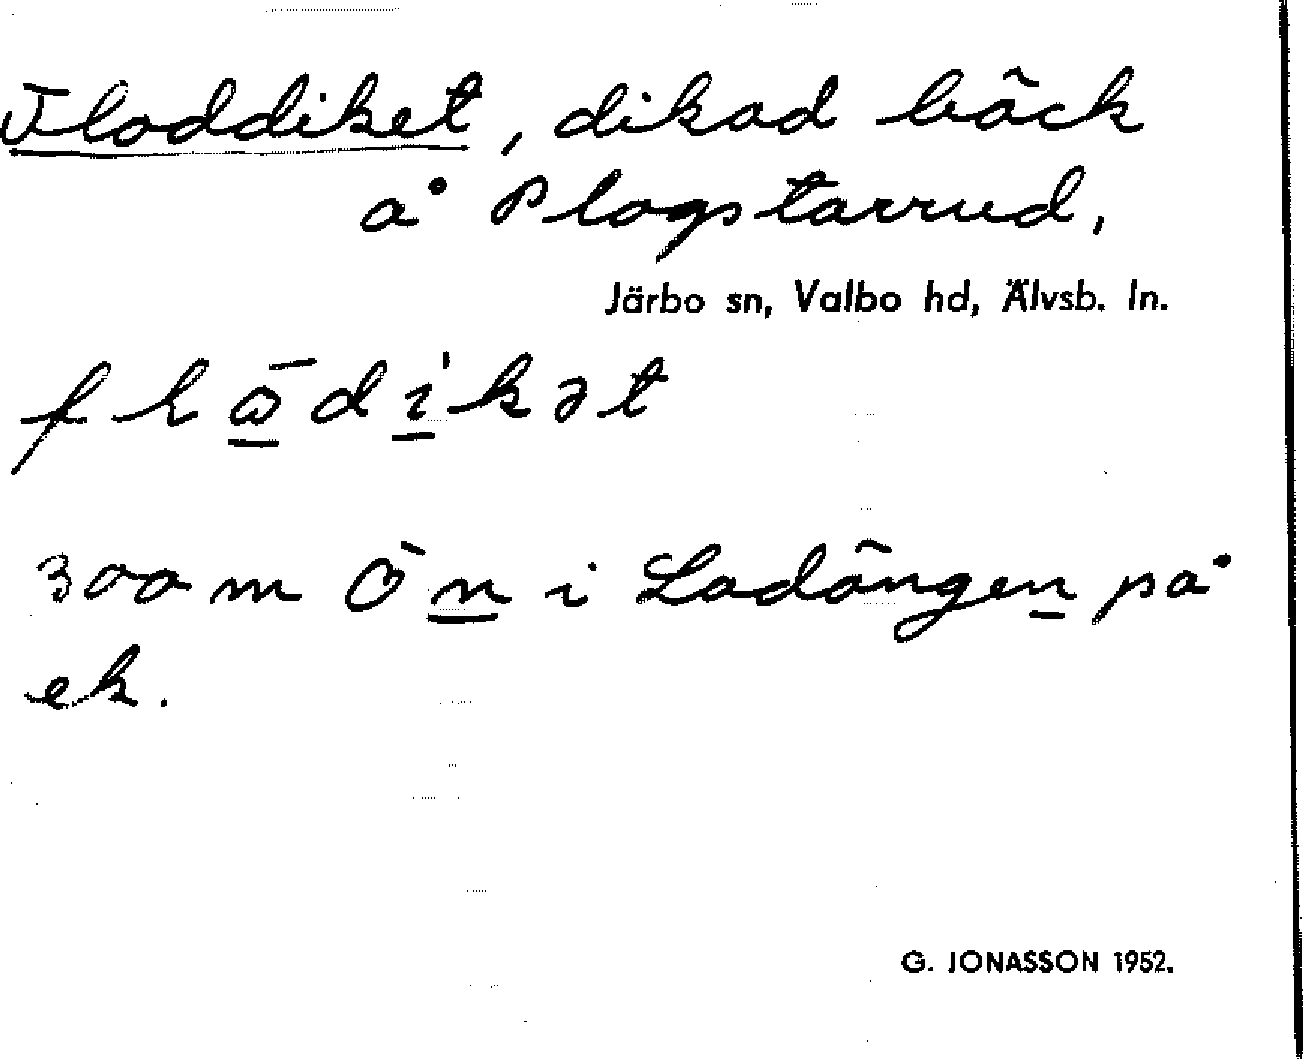 Floddiket, dikad bäck
å Plogstarrud,
Järbo sn, Valbo hd, Älvsb. ln.
flω̄dikət
300 m Ö n i Ladängen på
ek.
G. JONASSON 1952.